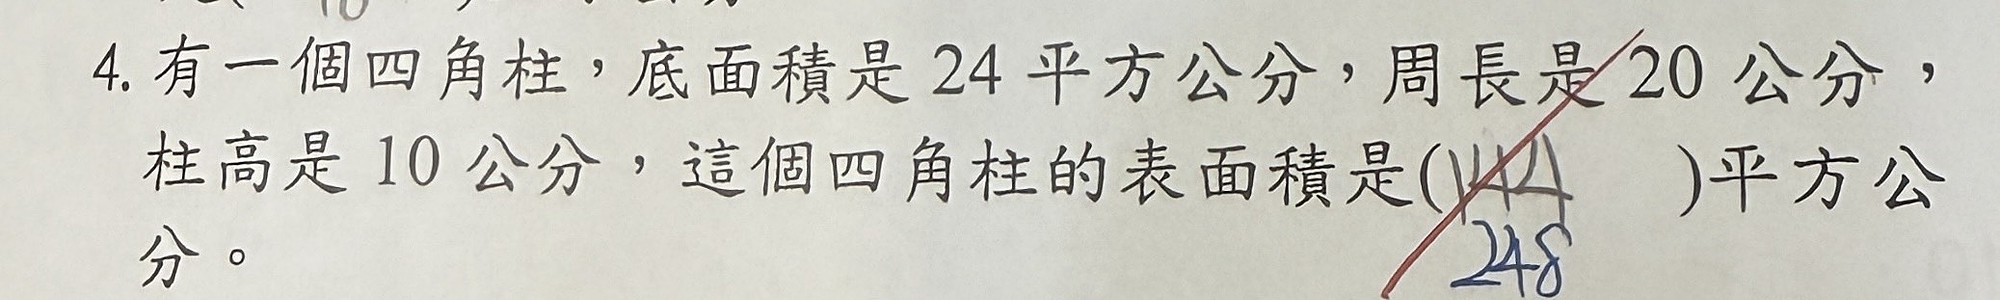 4. 有一個四角柱，底面積是 24 平方公分，周長是 20 公分，
柱高是 10 公分，這個四角柱的表面積是(144 )平方公
248
分。